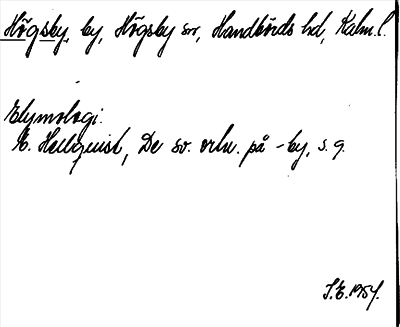 Högsby, by, Högsby sn, Handbörds hd, Kalm.l.
Etymologi.
E. Hellquist, De sv. ortn. på -by, s. 9.
S.E. 1954.